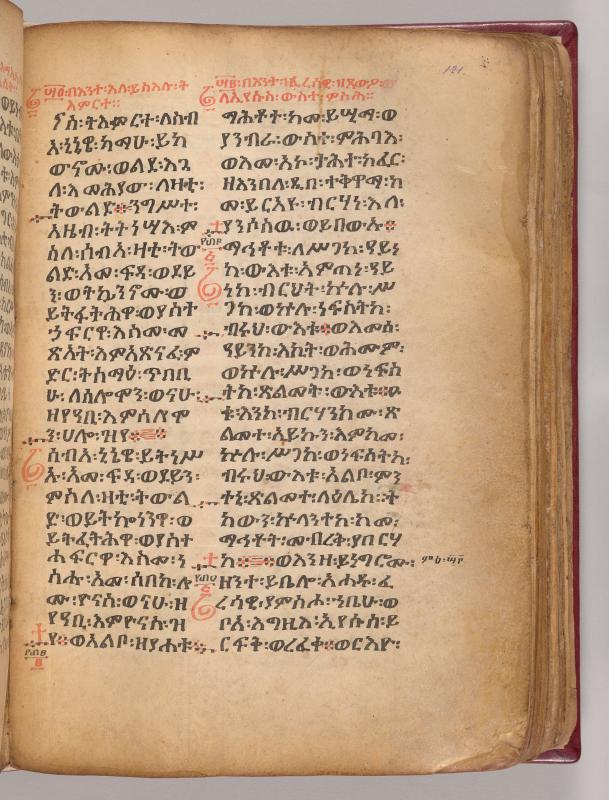 ፡በእንተ፡እለ፡ይስእሉ፡ት
እምርተ።
ናስ፡ትእምርተ፡ለሰብ
አ፡ነነዌ፡ከማሁ፡ይከ
ውኖሙ፡ወልደ፡እጓ
ለ፡እመሕያው፡ለዛቲ፡
ትውልድ።ንግሥተ፡
አዜብ፡ትትነሣእ፡ም
ስለ፡ሰብአ፡ዛቲ፡ትው
ልድ፡አመ፡ፍዳ፡ወደይ
ን፡ወትኴንኖሙ፡ወ
ይትፋትሕዋ፡ወያስት
ኃፍርዋ፡እስመ፡መ
ጽአት፡እምአጽናፈ፡ም
ድር፡ትስማዕ፡ጥበቢ
ሁ፡ለሰሎሞን፡ወናሁ፡
ዘየዓቢ፡እምሰሎሞ
ን፡ሀሎ፡ዝየ።
ሰብአ፡ነነዌ፡ይትነሥ
ኡ፡አመ፡ፍዳ፡ወደይን፡
ምስለ፡ዛቲ፡ትውል
ድ፡ወይትኰነንዋ፡ወ
ይትፋትሕዋ፡ወያስት
ሐፍርዋ፡እስመ፡ነ
ስሑ፡አመ፡ሰበከ፡ሎ
ሙ፡ዮናስ፡ወናሁ፡ዘ
የዓቢ፡እምዮናስ፡ዝ
የ።ወአልቦ፡ዘያሐቱ።
፡በእንተ፡ፈሪሳዊ፡ዘጸውዖ፡
ለኢየሱስ፡ውስተ፡ምሳሕ።
ማሕቶተ፡ከመ፡ይሢማ፡ወ
ያንብራ፡ውስተ፡ምሕባእ፡
ወእመ፡አኮ፡ታሕተ፡ከፈር፡
ዘእንበለ፡ዲበ፡ተቅዋማ፡ከ
መ፡ይርአዩ፡ብርሃነ፡እለ፡
ያንሶስዉ፡ወይበውኡ።
ማኅቶቱ፡ለሥጋከ፡ዓይን
ከ፡ውእቱ፡እምከመ፡ዓይ
ንከ፡ብርህት፡ኵሉ፡ሥ
ጋከ፡ወኵሉ፡ነፍስትከ፡
ብሩህ፡ውእቱ።ወእመሰ፡
ዓይንከ፡እኪት፡ወሕሙም፡
ወኵሉ፡ሥጋከ፡ወነፍስ
ትከ፡ጽልመት፡ውእቱ።ዑ
ቅ፡እንከ፡ብርሃንከሙ፡ጽ
ልመተ፡ኢይኩን፡እምከመ፡
ኵሉ፡ሥጋከ፡ወነፍስትከ፡
ብሩህ፡ውእቱ፡አልቦ፡ምን
ትኒ፡ጽልመተ፡ላዕሌከ፡ት
ከውን፡ኵላንታከ፡ከመ፡
ማኅቶት፡መብረቅ፡ያበርሃ
ከ።ወእንዘ፡ይነግሮሙ፡
ዘንተ፡ይቤሎ፡አሐዱ፡ፈ
ሪሳዊ፡ያምስሖ፡ኀቤሁ፡ወ
ቦአ፡እግዚእ፡ኢየሱስ፡ይ
ርፍቅ፡ወረፈቀ።ወርእዮ፡
121.